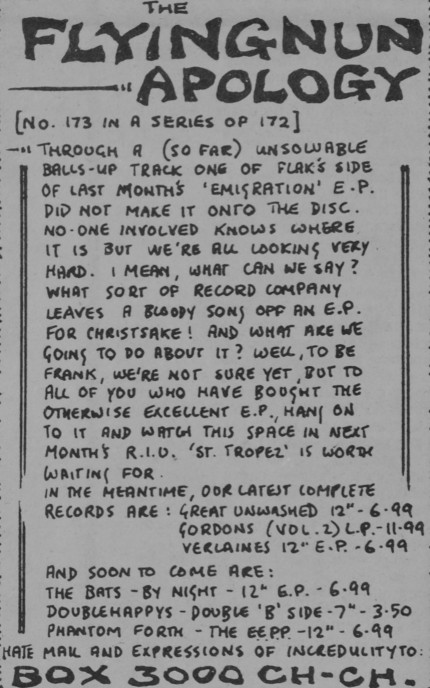 THE
FLYINGNUN
APOLOGY
[NO. 173 IN A SERIES OF 172]
THROUGH A (SO FAR) UNSOLVABLE
BALLS-UP TRACK ONE OF FLAK'S SIDE
OF LAST MONTH'S 'EMIGRATION' E.P.
DID NOT MAKE IT ONTO THE DISC.
NO-ONE INVOLVED KNOWS WHERE
IT IS BUT WE'RE ALL LOOKING VERY
HARD. I MEAN, WHAT CAN WE SAY?
WHAT SORT OF RECORD COMPANY
LEAVES A BLOODY SONG OFF AN E.P.
FOR CHRISTSAKE! AND WHAT ARE WE
GOING TO DO ABOUT IT? WELL, TO BE
FRANK, WE'RE NOT SURE YET, BUT TO
ALL OF YOU WHO HAVE BOUGHT THE
OTHERWISE EXCELLENT E.P., HANG ON
TO IT AND WATCH THIS SPACE IN NEXT
MONTH'S R.I.U. 'ST. TROPEZ' IS WORTH
WAITING FOR.
IN THE MEANTIME, OUR LATEST COMPLETE
RECORDS ARE: GREAT UNWASHED 12" - 6.99
GORDONS (VOL. 2) L.P. - 11.99
VERLAINES 12" E.P. - 6.99
AND SOON TO COME ARE:
THE BATS - BY NIGHT - 12" E.P. - 6.99
DOUBLEHAPPYS - DOUBLE 'B' SIDE - 7" - 3.50
PHANTOM FORTH - THE EEPP - 12" - 6.99
HATE MAIL AND EXPRESSIONS OF INCREDULITY TO:
BOX 3000 CH-CH.